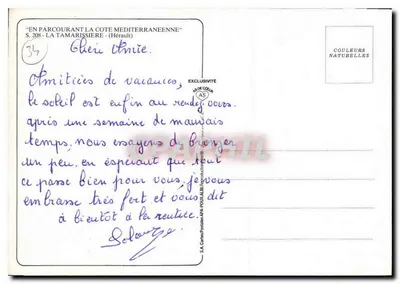 "EN PARCOURANT LA COTE MEDITERRANEENNE"
S. 208 - LA TAMARISSIERE - (Hérault)
34
Chère Amie.
Amitiées de vacances,
le soleil est enfin au rendez vous
après une semaine de mauvais
temps, nous essayons de bronzer
un peu, en espérant que tout
ce passe bien pour vous, je vous
embrasse très fort et vous dit
à bientôt à la rentrée.
Solange
EXCLUSIVITÉ
AS DE COEUR
AS
COULEURS
NATURELLES